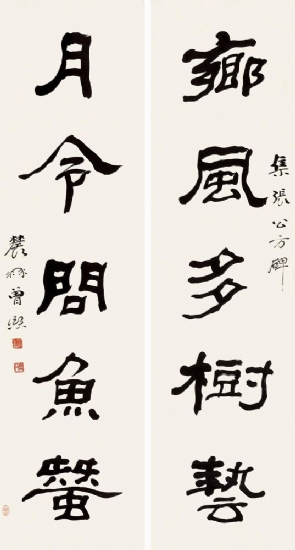 鄉風多樹藝
集張公方碑
月令問魚蠶
農髯曾熙